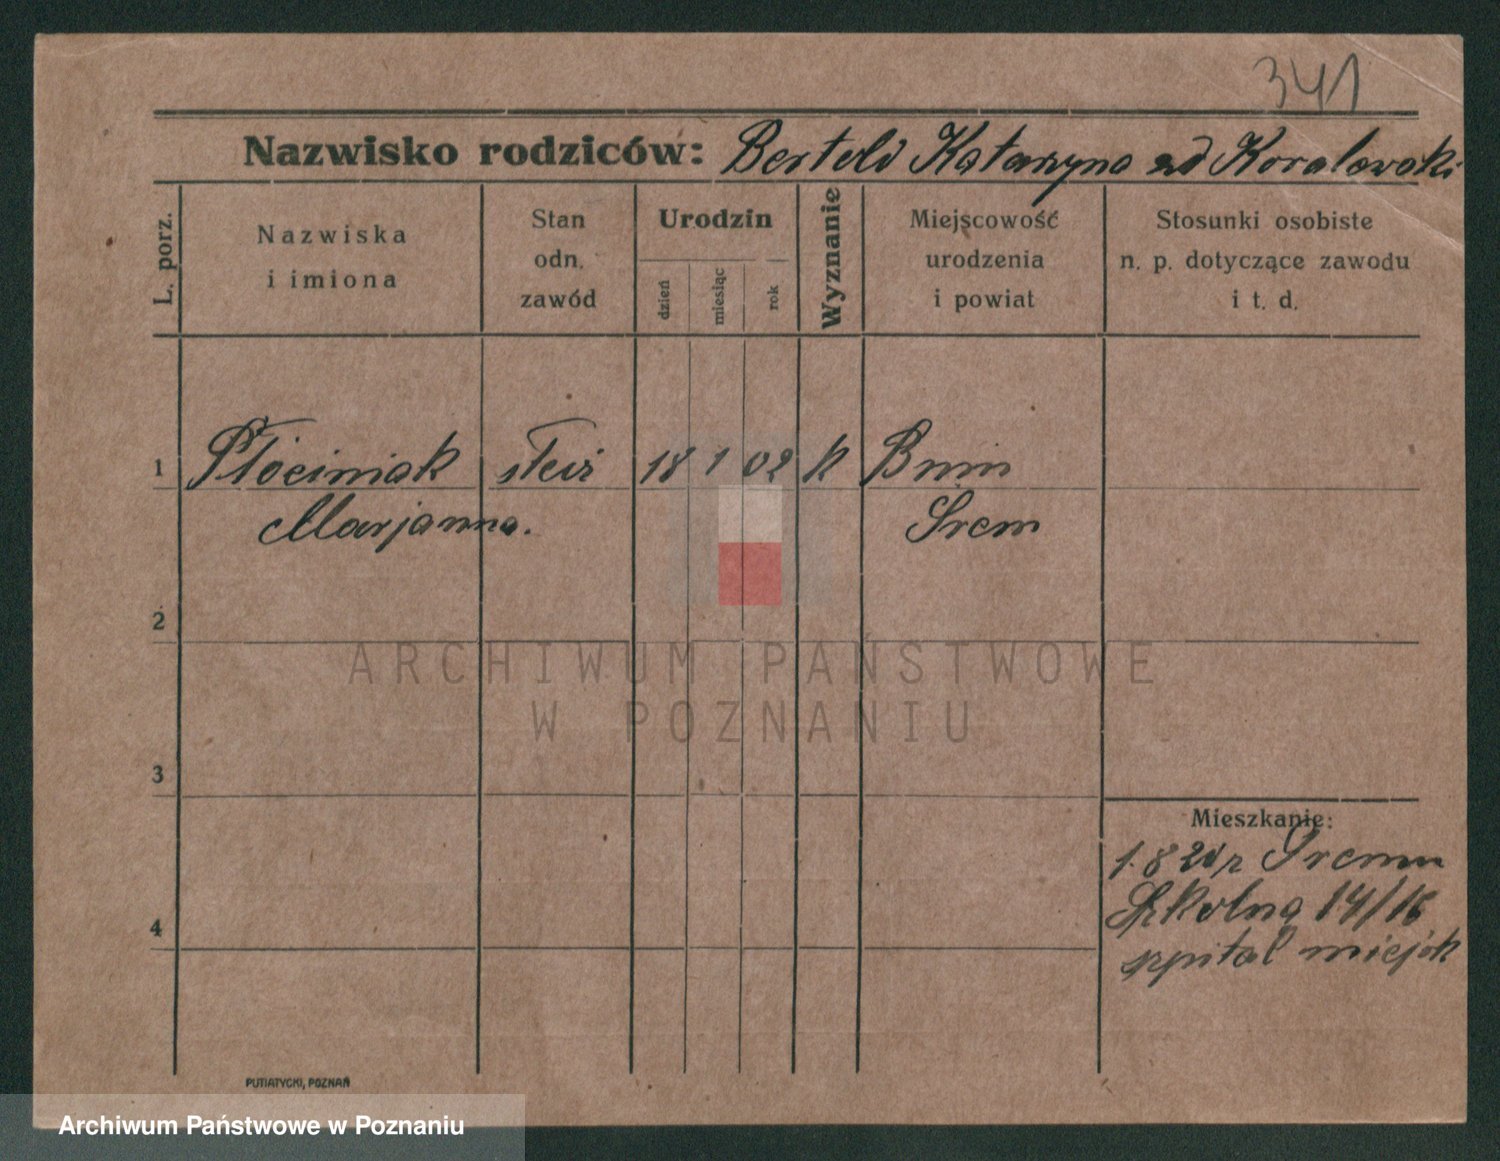 341
Nazwisko rodziców: Bertold Katarzyna zd Koralewski
L. porz.
Nazwiska
i imiona
Stan
odn.
zawód
Urodzin
dzień
miesiąc
rok
Wyznanie
Miejscowość
urodzenia
i powiat
Stosunki osobiste
n. p. dotyczące zawodu
i t. d.
1 Płóciniak 18 1 02 k Bnin
Marjanna. Śrem
2
ARCHIWUM PAŃSTWOWE
W POZNANIU
3
Mieszkanie:
1.8 Śremu
Szkolna 14/16
4
szpital miejsk
PUTIATYCKI, POZNAŃ
Archiwum Państwowe w Poznaniu